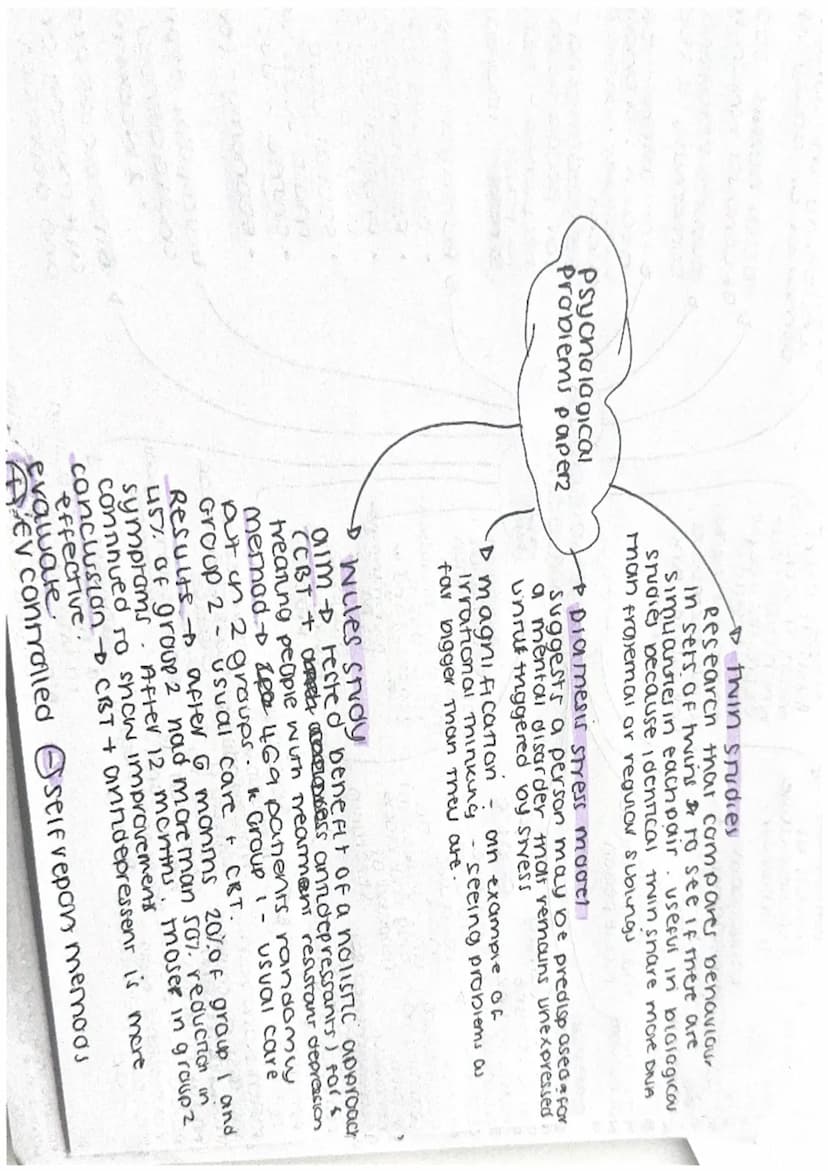 Psychological
problems paper2
twin studies
Research that compares behaviour
in sets of twins to see if there are
similarities in each pair. useful in biological
studies because identical twin share more DNA
than fraternal or regular siblings
Diathesis stress model
suggests a person may be predisposed for
a mental disorder that remains unexpressed
until triggered by stress
magnification: an example of
irrational thinking - seeing problems as
far bigger than they are.
Wiles study
aim → tested benefit of a holistic approach
(CBT + antidepressants) for
treating people with treatment resistant depression
method → 469 patients randomly
put in 2 groups. Group 1 - usual care
Group 2 - usual care + CBT.
Results → after 6 months 20% of group 1 and
45% of group 2 had more than 50% reduction in
symptoms. After 12 months, those in group 2
continued to show improvement
conclusion → CBT + antidepressent is more
effective.
evaluate.
⊕ EV controlled ⊖ self report methods